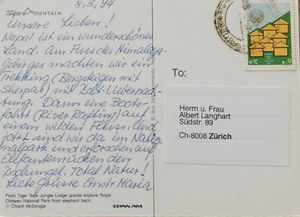 Tiger Mountain.
8.3.94
Unsere Lieben!
Nepal ist ein wunderschönes
Land. Am Fuss des Himalaya-
Gebirges machten wir ein
Trekking (Bergsteigen mit
Sherpas) mit Zelt-Übernach-
tung. Dann eine Boots-
fahrt (River Rafting) auf
einem wilden Fluss. Und
jetzt sind wir da im Natio-
nalpark und erforschen auf
Elefantenrücken den
Dschungel. Total Natur!
Liebe Grüsse Ernst Maria
From Tiger Tops Jungle Lodge guests explore Royal
Chitwan National Park from elephant back.
© Chuck McDougal
PAN AM
To:
Herrn u. Frau
Albert Langhart
Südstr. 89
Ch-8008 Zürich